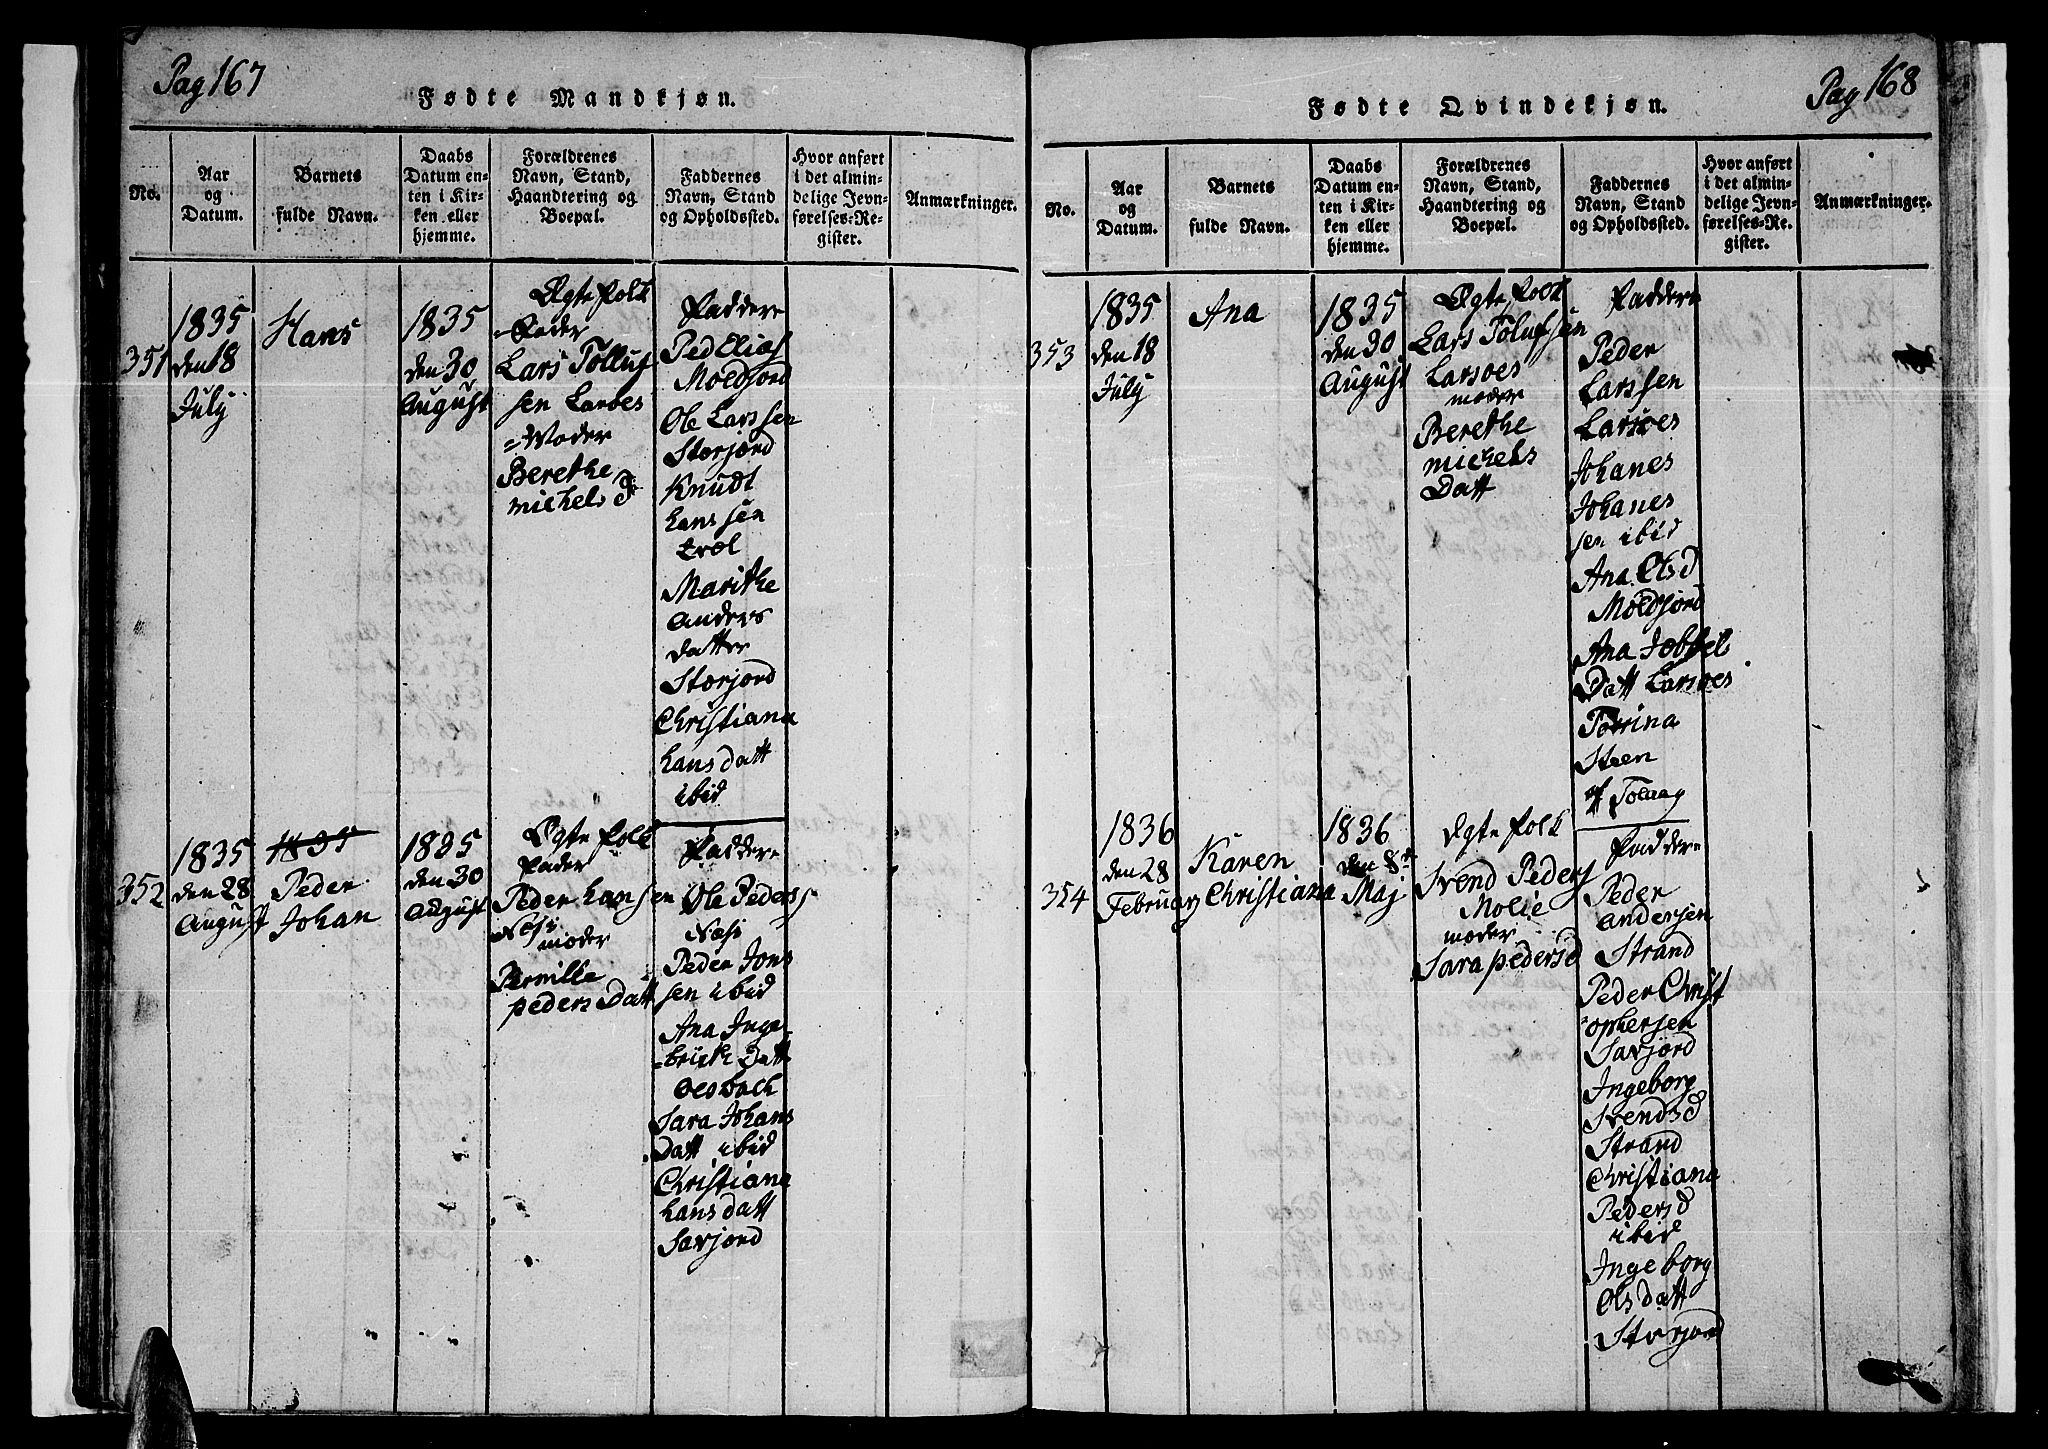 Pag 167
Fødte Mandkjøn.
No.
Aar
og
Datum.
Barnets
fulde Navn.
Daabs
Datum en-
ten i Kir-
ken eller
hjemme.
Forældrenes
Navn, Stand,
Haandtering og
Boepæl.
Faddernes
Navn, Stand
og Opholdssted.
Hvor anført
i det almin-
delige Jevn-
førelses-Re-
gister.
Anmærkninger.
351
1835
den 18
July
Hans
1835
den 30
August
Ægte folk
Fader
Lars Tollup
sen Larsoes
Moder
Berethe
michels D
Faddere
Ped Elias
Moldjord
Ole Larssen
Storjord
Knudt
Hanssen
Evol
Marithe
Anders
datter
Storjord
Christiana
Hansdatt
ibid
352
1835
den 28
August
1835
Peder
Johan
1835
den 30
August
Ægte folk
Fader
Peder Hansen
Næsi
moder
Pernille
peders Datt
Faddere
Ole Peders
Næsi
Peder Jons
sen ibid
Ana Inge
brickt Datt
Olsbach
Sara Johans
Datt ibid
Christiana
Hansdatt
Savjord
Pag 168
Fødte Qvindekjøn.
No.
Aar
og
Datum.
Barnets
fulde Navn.
Daabs
Datum en-
ten i Kir-
ken eller
hjemme.
Forældrenes
Navn, Stand,
Haandtering og
Boepæl.
Faddernes
Navn, Stand
og Opholdssted.
Hvor anført
i det almin-
delige Jevn-
førelses-Re-
gister.
Anmærkninger.
353
1835
den 18
July
Ana
1835
den 30
August
Ægte folk
Lars Tolufsen
Larsoes
moder
Berethe
michels
Datt
Faddere
Peder
Larssen
Larsoes
Johanes
Johanes
sen ibid
Ana Elsd
Moldjord
Ana
Datt Larsoes
Torina
Steen
af
354
1836
den 28
February
Karen
Christiana
1836
den 8d
Maj
Ægte folk
Svend Peders
Molie
moder
Sara pedersd
Faddere
Peder
andersen
Strand
Peder Christ
ophersen
Savjord
Ingeborg
Svendsd
Strand
Christiana
Pedersd
ibid
Ingeborg
Olsdatt
Storjord